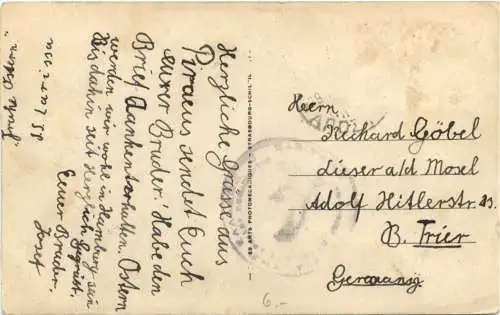 Herzliche Grüsse aus
Piraeus sendet Euch
eurer Bruder. Habe den
Brief dankent erhalten. Ostern
werden wir wohl in Hamburg sein
Bis dahin seit Herzlich Gegrüst.
Euer Bruder.
Josef
Herrn
Richard Göbel
Lieser a/d Mosel
Adolf Hitlerstr.
B. Trier
Germany
6.-